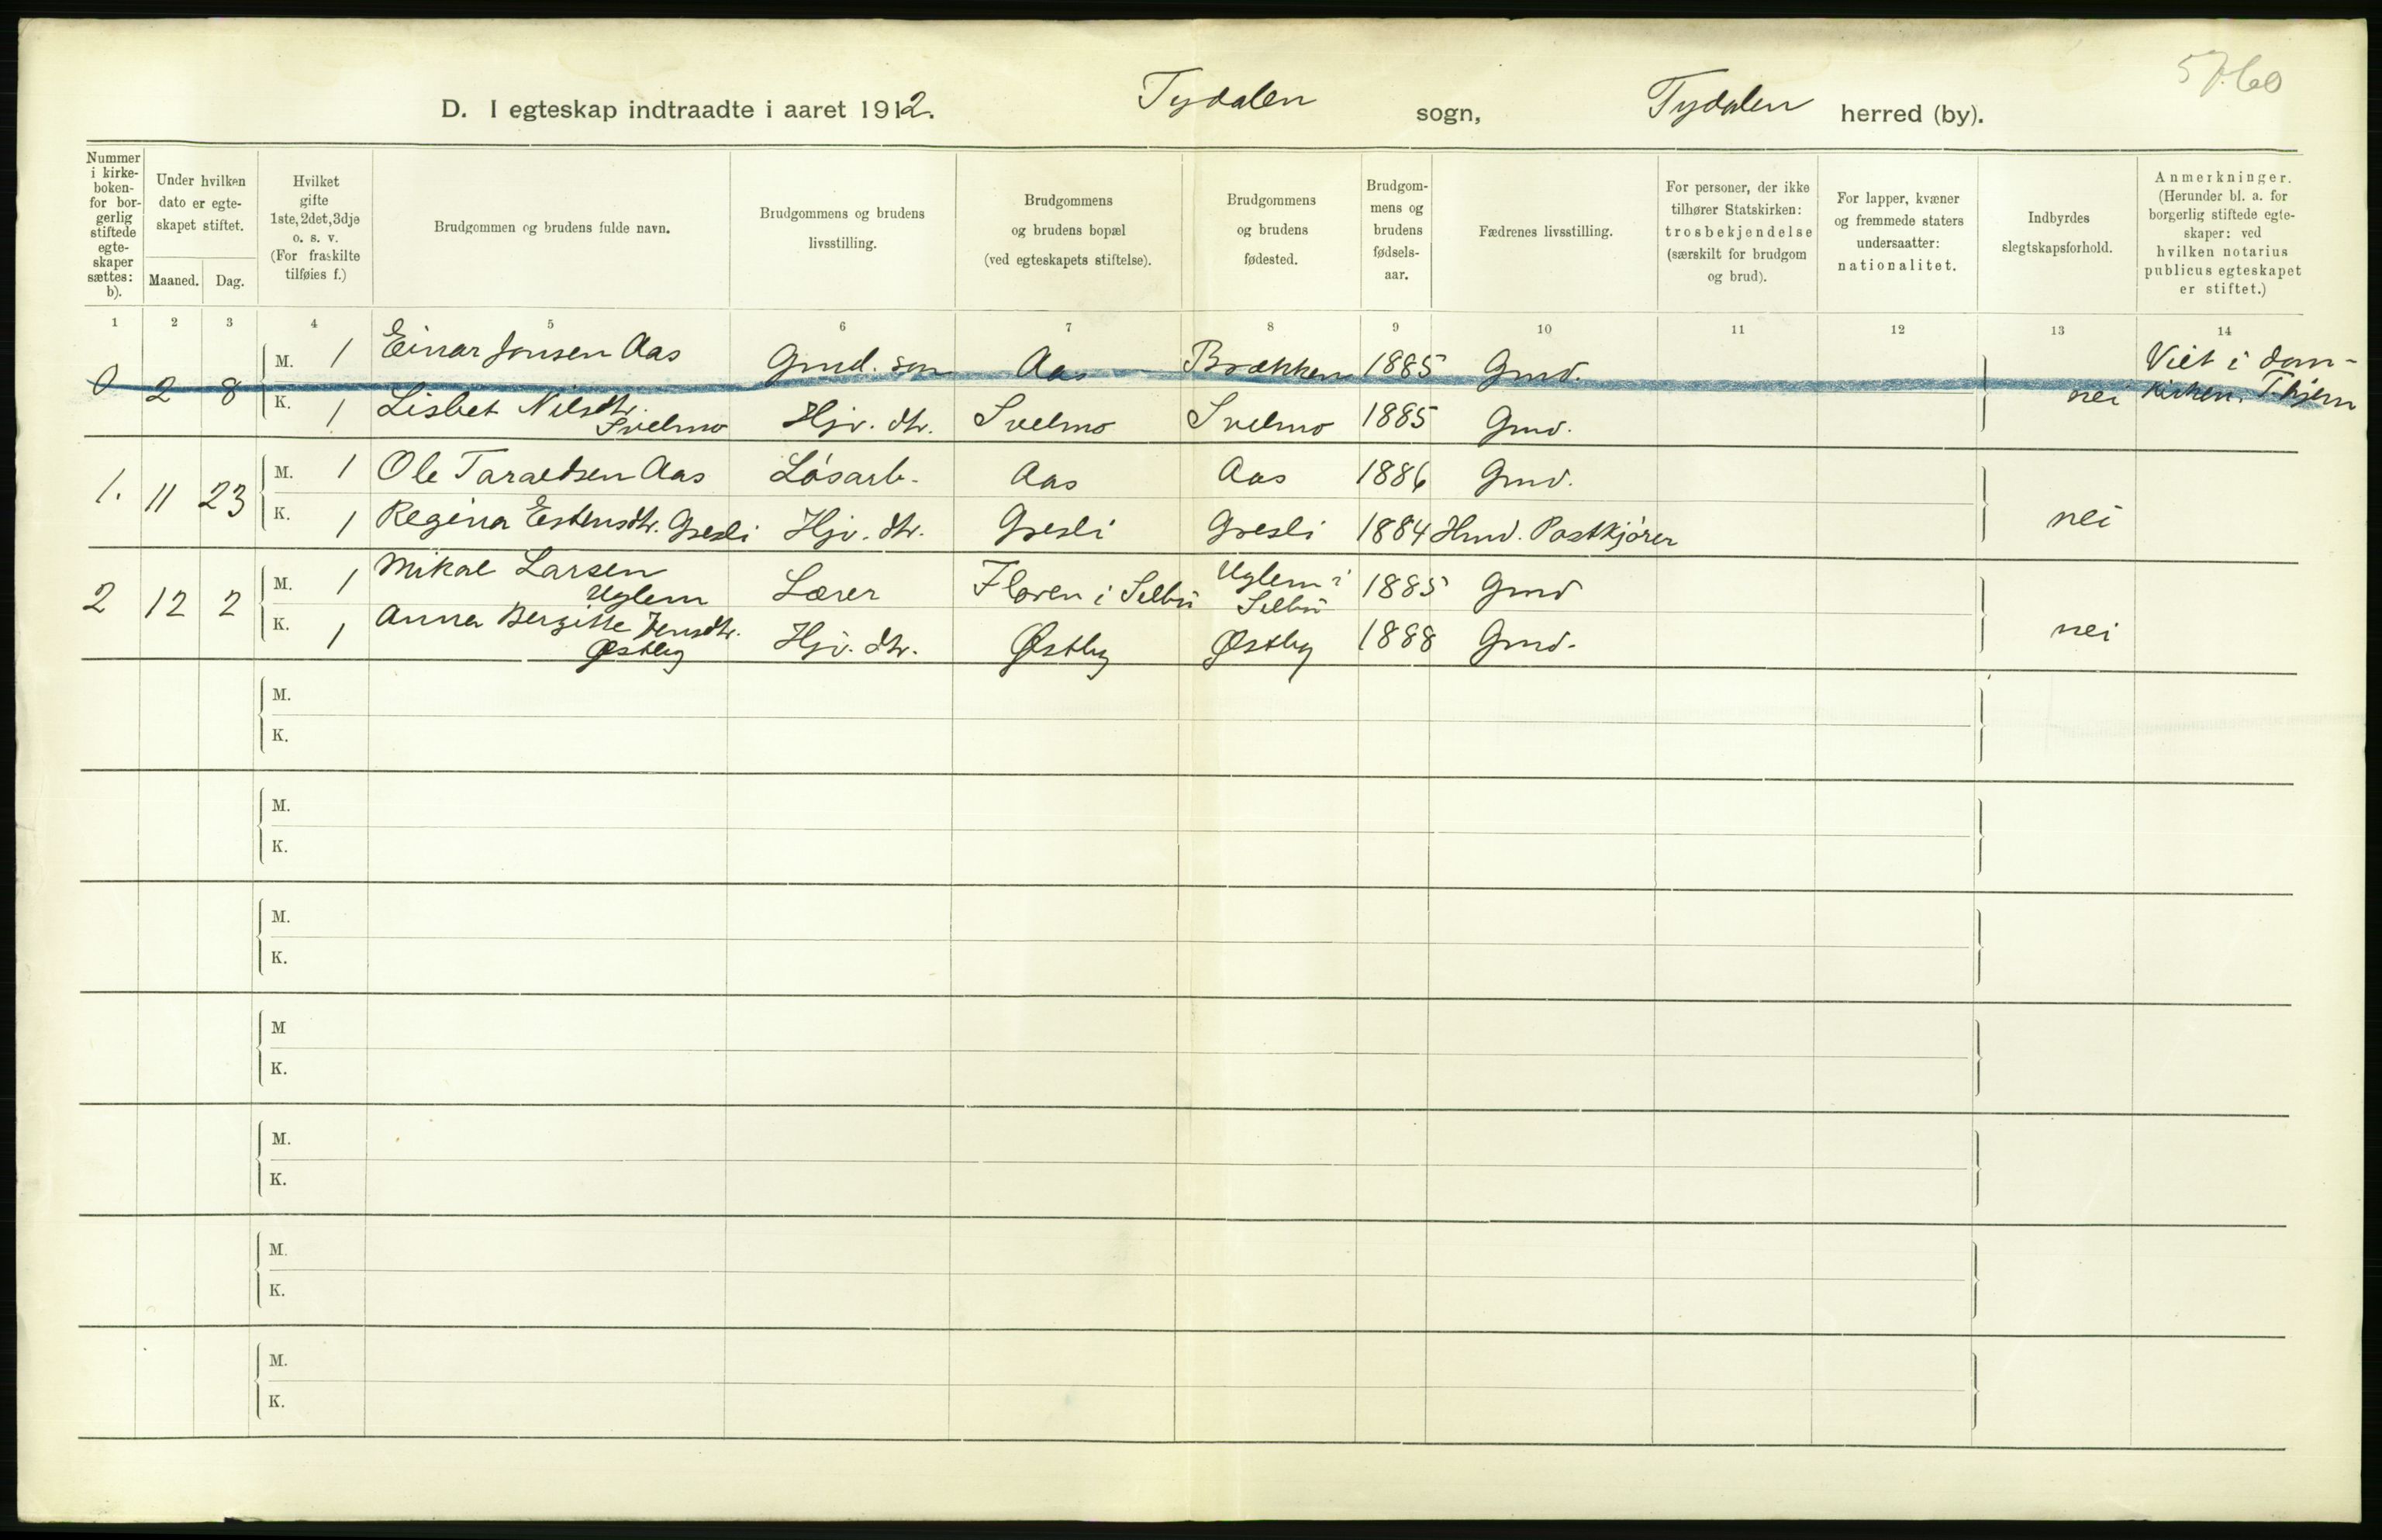 57.60
D. I egteskap indtraadte i aaret 1912. Tydalen sogn, Tydalen herred (by).
Nummer i kirke-boken- for bor-gerlig stiftede egte-skaper sættes: b).
Under hvilken dato er egte-skapet stiftet.
Maaned. Dag.
Hvilket gifte 1ste, 2det, 3dje o. s. v. (For fraskilte tilføies f.)
Brudgommen og brudens fulde navn.
Brudgommens og brudens livsstilling.
Brudgommens og brudens bopæl (ved egteskapets stiftelse).
Brudgommens og brudens fødested.
Brudgom-mens og brudens fødsels-aar.
Fædrenes livsstilling.
For personer, der ikke tilhører Statskirken: trosbekjendelse (særskilt for brudgom og brud).
For lapper, kvæner og fremmede staters undersaatter: nationalitet.
Indbyrdes slegtskapsforhold.
Anmerkninger. (Herunder bl. a. for borgerlig stiftede egte-skaper: ved hvilken notarius publicus egteskapet er stiftet.)
1 2 3 4 5 6 7 8 9 10 11 12 13 14
0 2 8 M. 1 Einar Jonsen Aas Gmd. søn Aas Brækken 1885 Gmd. nei Viet i dom-
kirken. Thjem
K. 1 Lisbet Nilsdtr. Svelmo Hjv. dtr. Svelmo Svelmo 1885 Gmd.
1. 11 23 M. 1 Ole Taraldsen Aas Løsarb. Aas Aas 1886 Gmd. nei
K. 1 Regina Estensdtr. Gresli Hjv. dtr. Gresli Gresli 1884 Hmd. Postkjører
2 12 2 M. 1 Mikal Larsen Uglem Lærer Floren i Selbu Uglem i Selbu 1885 Gmd nei
K. 1 Anna Bergitte Jensdtr. Østby Hjv. dtr. Østby Østby 1888 Gmd.
M.
K.
M.
K.
M.
K.
M
K.
M.
K.
M.
K.
M.
K.